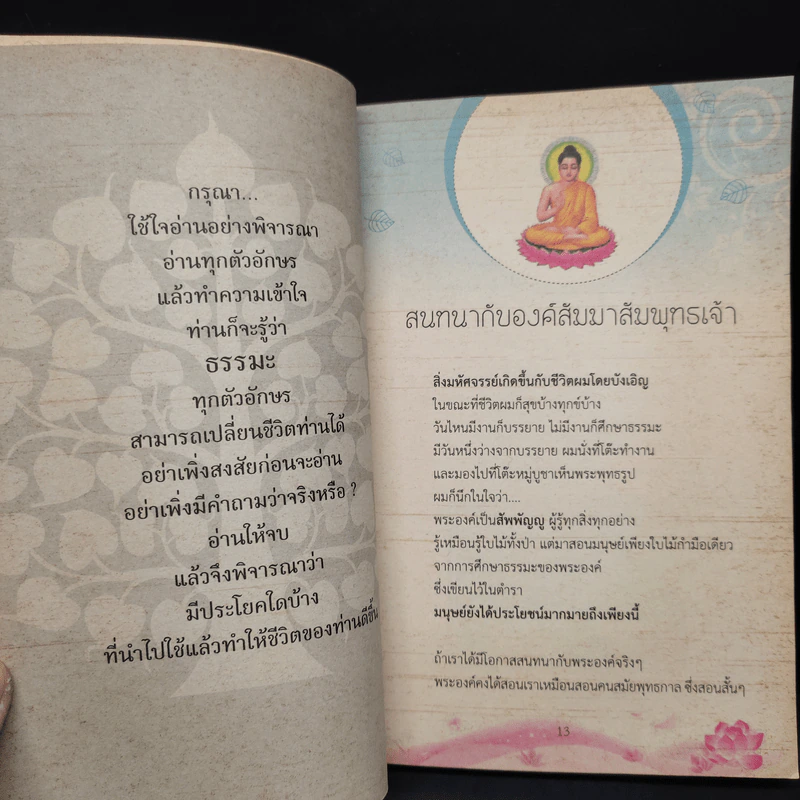 กรุณา...
ใช้ใจอ่านอย่างพิจารณา
อ่านทุกตัวอักษร
แล้วทำความเข้าใจ
ท่านก็จะรู้ว่า
ธรรมะ
ทุกตัวอักษร
สามารถเปลี่ยนชีวิตท่านได้
อย่าเพิ่งสงสัยก่อนจะอ่าน
อย่าเพิ่งมีคำถามว่าจริงหรือ ?
อ่านให้จบ
แล้วจึงพิจารณาว่า
มีประโยคใดบ้าง
ที่นำไปใช้แล้วทำให้ชีวิตของท่านดีขึ้น
สนทนากับองค์สัมมาสัมพุทธเจ้า
สิ่งมหัศจรรย์เกิดขึ้นกับชีวิตผมโดยบังเอิญ
ในขณะที่ชีวิตผมก็สุขบ้างทุกข์บ้าง
วันไหนมีงานก็บรรยาย ไม่มีงานก็ศึกษาธรรมะ
มีวันหนึ่งว่างจากบรรยาย ผมนั่งที่โต๊ะทำงาน
และมองไปที่โต๊ะหมู่บูชาเห็นพระพุทธรูป
ผมก็นึกในใจว่า....
พระองค์เป็นสัพพัญญู ผู้รู้ทุกสิ่งทุกอย่าง
รู้เหมือนรู้ใบไม้ทั้งป่า แต่มาสอนมนุษย์เพียงใบไม้กำมือเดียว
จากการศึกษาธรรมะของพระองค์
ซึ่งเขียนไว้ในตำรา
มนุษย์ยังได้ประโยชน์มากมายถึงเพียงนี้
ถ้าเราได้มีโอกาสสนทนากับพระองค์จริงๆ
พระองค์คงได้สอนเราเหมือนสอนคนสมัยพุทธกาล ซึ่งสอนสั้นๆ
13